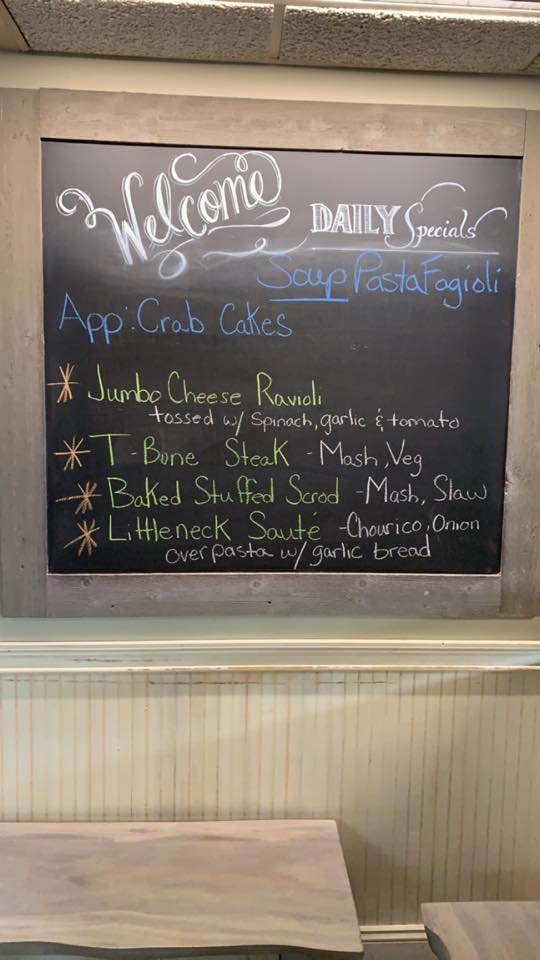 Welcome
DAILY Specials
Soup Pasta Fagioli
App: Crab Cakes
Jumbo Cheese Ravioli
tossed w/ Spinach, garlic & tomato
T-Bone Steak - Mash, Veg
Baked Stuffed Scrod - Mash, Slaw
Littleneck Sauté - Chourico, Onion
over pasta w/ garlic bread